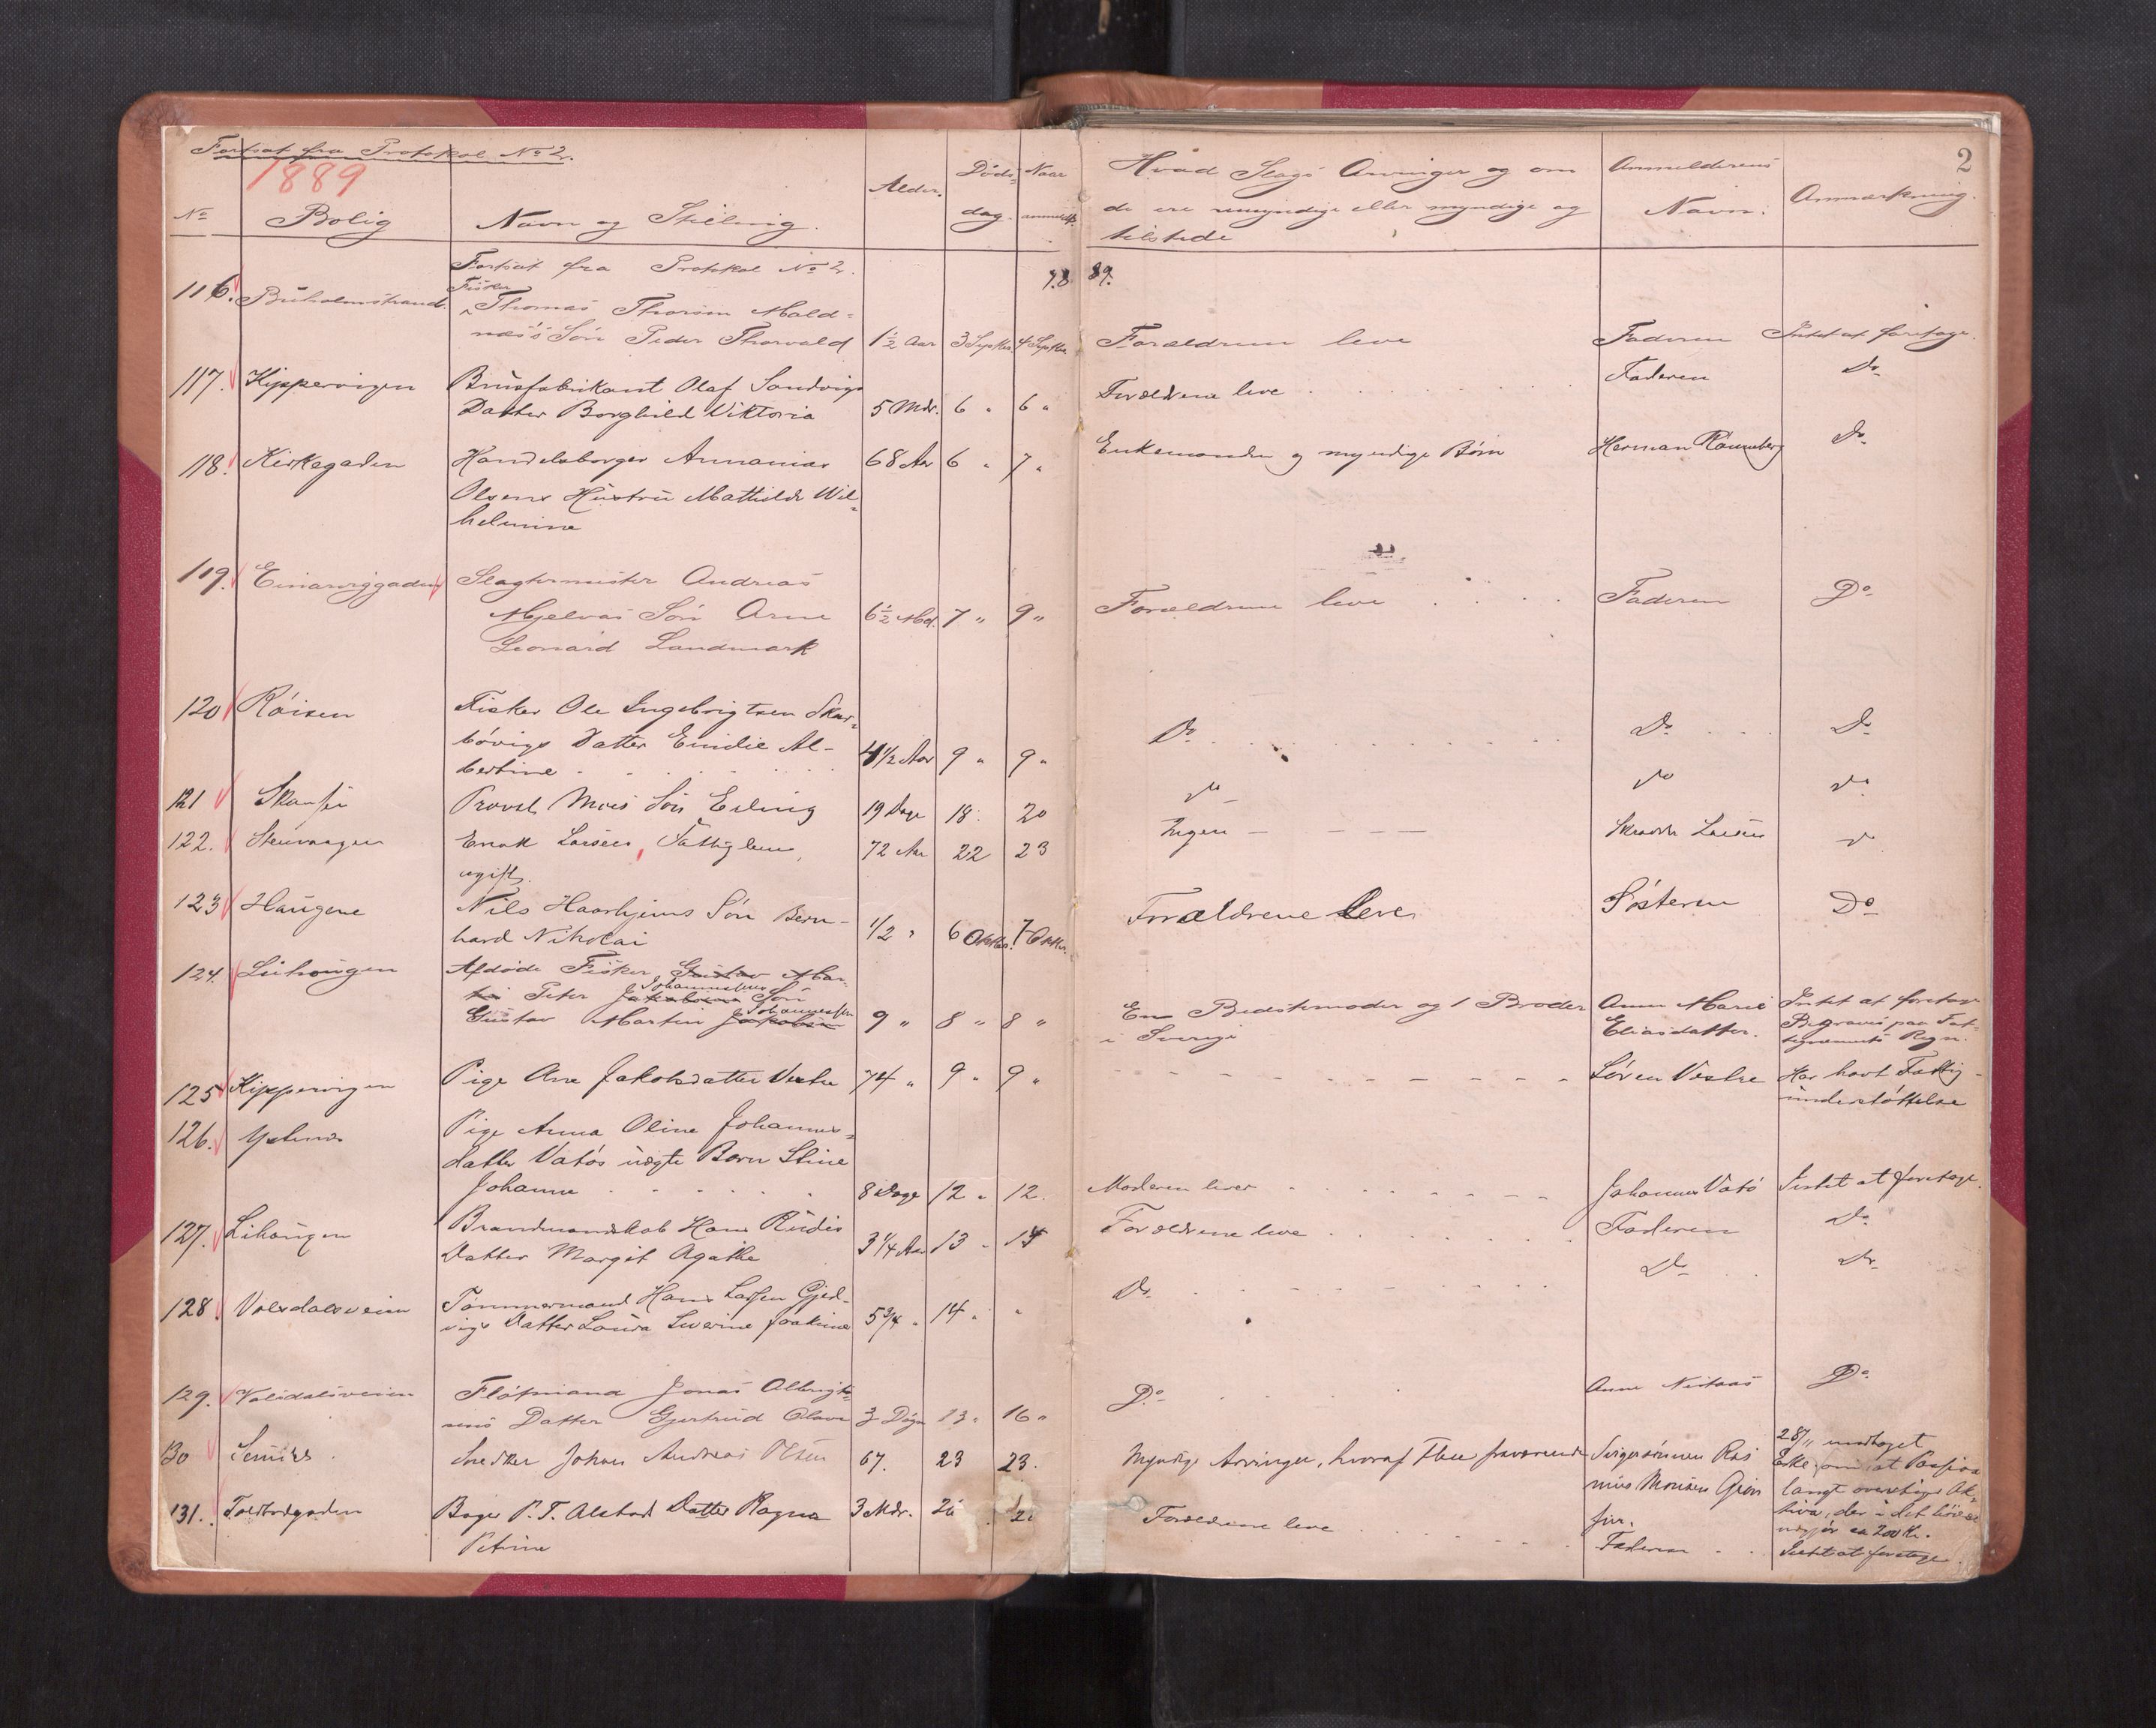 Fortsat fra Protokol No 2.
1889
2
No Bolig Navn og Stilling. Alder. Døds- dag. Naar anmeldt.
Hvad Slags Arvinger og om de ere umyndige eller myndige og tilstede
Anmelderens Navn. Anmærkning.
Fortsat fra Protokol No 2. 89.
116. Buholmstrand. Fisker Thomas Thorsen Mold-
næs's Søn Peder Thorvald 1½ Aar 3 Septbr 4 Septbr Forældrene leve Faderen Intet at foretage.
117. Kippervigen Brusfabrikant Olaf Sandvigs
Datter Borghild Viktoria 5 Mdr. 6 " 6 " Forældrene leve Faderen Do
118. Kirkegaden Handelsborger Annanias 68 Aar 6 " 7 " Enkemanden og myndige Børn Herman Rønneberg Do
Olsens Hustru Mathilde Wil-
helmine
119. Einarviggaden Slagtermester Andreas
Mjelvas Søn Arne 6½ Md. 7 " 9 " Forældrene leve Faderen Do
Leonard Landmark
120 Røisen Fisker Ole Ingebrigtsen Skar-
bøvigs Datter Emilie Al-
bertine 4½ Aar 9 " 9 " Do Do Do
121 Skansen Provst Moes Søn Erling 19 Dage 18. 20 do do do
122. Stenvaagen Enok Larsen, Fattiglem, 72 Aar 22 23 Ingen Larsen do
ugift.
123 Haugene Nils Haarhjems Søn Bern-
hard Nikolai 1/2 " 6 Oktbr. 7 Oktbr. Forældrene leve Søsteren Do
124. Lihaugen Afdøde Fisker Gustav Mar-
tin Peter Jakobsens Johannessens Søn
Gustav Martin Jakobsen Johannessen 9 " 8 " 8 " En Bedstemoder og 1 Broder i Sverige Anne Marie Eliasdatter. Intet at foretage Begraves paa Fat-
tigvæsenets Regn.
125 Kippervigen Pige Ane Jakobsdatter Vestre 74 " 9 " 9 " Søren Vestre Har havt Fattig-
understøttelse
126. Ystenes Pige Anna Oline Johannes-
datter Vatøs uægte Barn Stine
Johanne 8 Dage 12 " 12. Moderen lever Johannes Vatø Intet at foretage.
127. Lihaugen Brandmandskab Hans Rudis
Datter Margit Agathe 3¼ Aar 13 " 14 Forældrene leve Faderen Do
128. Volsdalsveien Tømmermand Hans Larsen Gjed-
vigs Datter Laura Severine Joakime 5¾ " 14 " " Do Do Do
129. Volsdalsveien Fløtmand Jonas Albrigt-
sens Datter Gjertrud Olava 3 Døgn 13 " 16 " Do Anne Do
130 Snedker Johan Andreas Olsen 67. 23 23. Myndige Arvinger, hvoraf flere fraværende Svigersønnen Ras-
mus Monsen Gjør-
28/11 modtaget
Erkl. om at Passiva
langt overstiger Ak-
tiva, der i det høieste
udgjør ca 200 Kr.
131. Toldbodgaden Bager P. T. Alstads Datter Ragna 3 Mdr. 26 Forældrene leve Faderen Intet at foretage.
Petrine